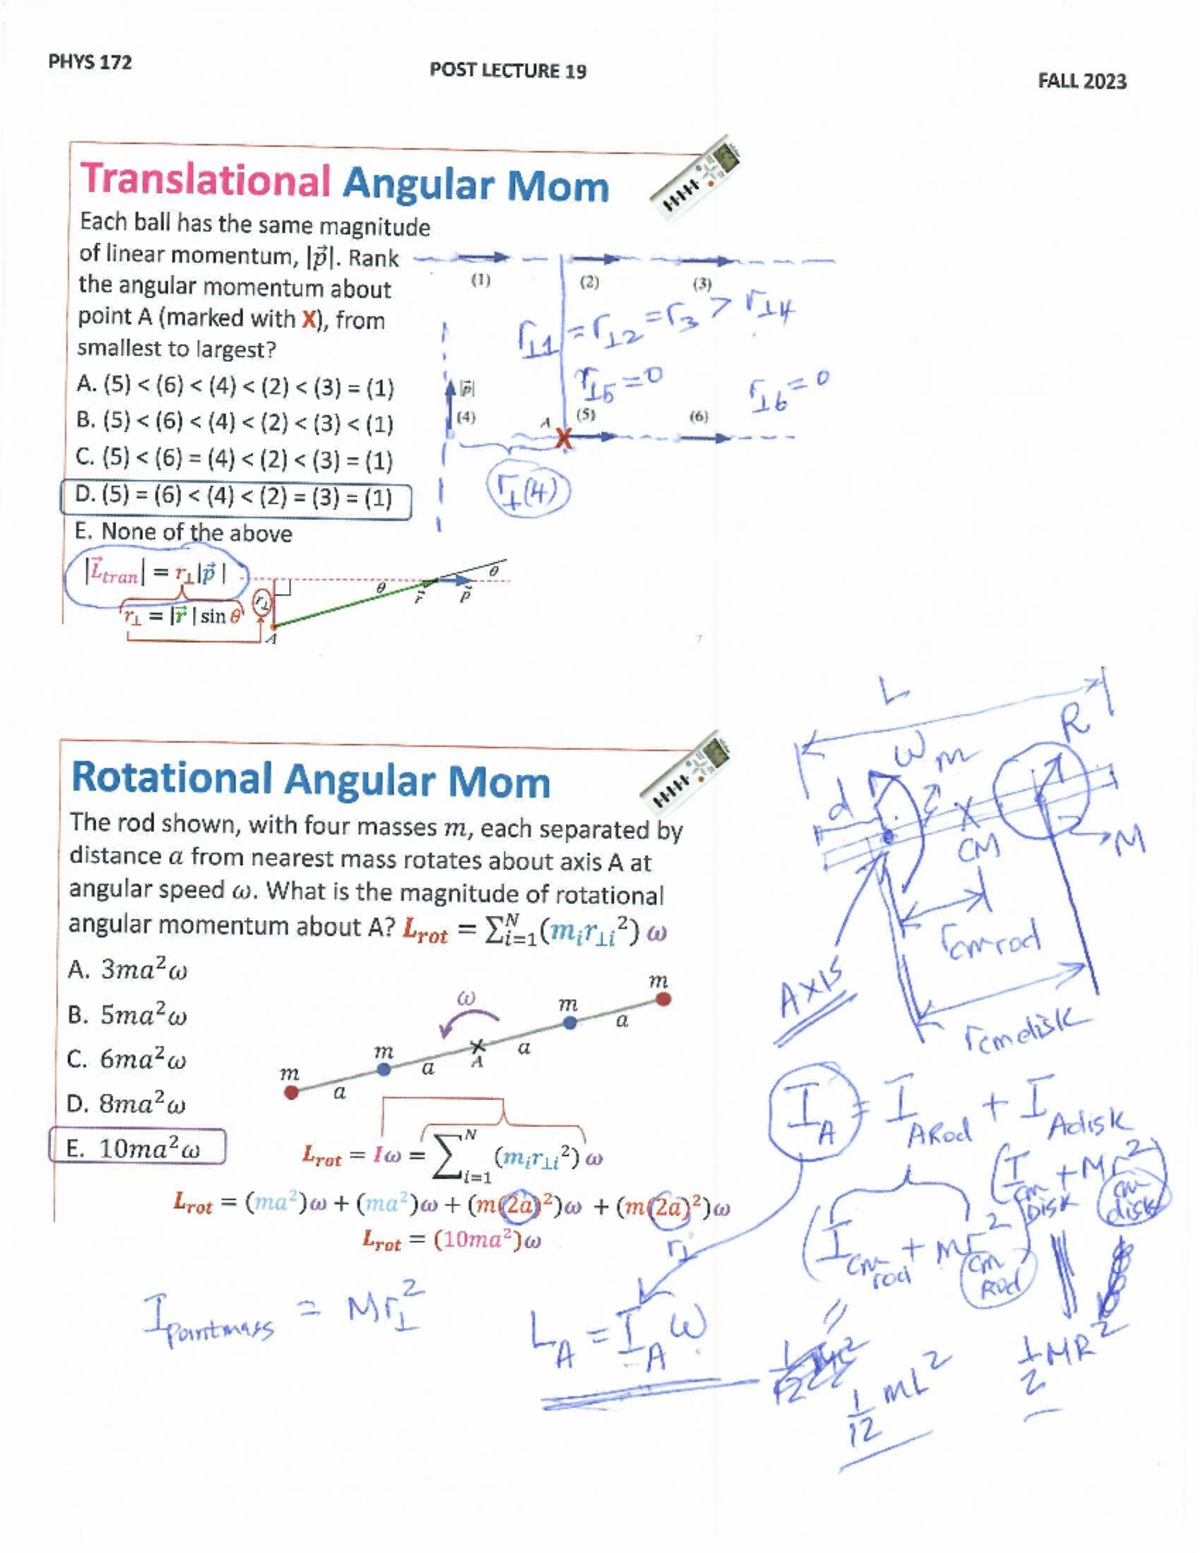 PHYS 172
POST LECTURE 19
FALL 2023
Translational Angular Mom
Each ball has the same magnitude
of linear momentum, |p⃗|. Rank
the angular momentum about
point A (marked with X), from
smallest to largest?
A. (5) < (6) < (4) < (2) < (3) = (1)
B. (5) < (6) < (4) < (2) < (3) < (1)
C. (5) < (6) = (4) < (2) < (3) = (1)
D. (5) = (6) < (4) < (2) = (3) = (1)
E. None of the above
(1) (2) (3)
r⊥1 = r⊥2 = r3 > r⊥4
r⊥5 = 0
r⊥6 = 0
|p⃗|
(4) A (5) (6)
X
r⊥(4)
|L⃗tran| = r⊥|p⃗|
r⊥ = |r⃗| sin θ
r⊥ θ r⃗ p⃗ θ
A
7
Rotational Angular Mom
The rod shown, with four masses m, each separated by
distance a from nearest mass rotates about axis A at
angular speed ω. What is the magnitude of rotational
angular momentum about A? Lrot = Σᵢ₌₁ᴺ(mᵢr⊥ᵢ²) ω
A. 3ma²ω
B. 5ma²ω
C. 6ma²ω
D. 8ma²ω
E. 10ma²ω
m a m a A ω a m a m
Lrot = Iω = Σᵢ₌₁ᴺ (mᵢr⊥ᵢ²) ω
Lrot = (ma²)ω + (ma²)ω + (m(2a)²)ω + (m(2a)²)ω
Lrot = (10ma²)ω
I pointmass = Mr⊥²
r⊥
L_A = I_A ω
L
R
ω m
d
CM
M
r cmrod
AXIS
r cmdisk
I_A = I_ARod + I_Adisk
(I cm Disk + Mr² cm disk)
(I cm rod + mr² cm Rod)
1/12 mL²
1/2 MR²